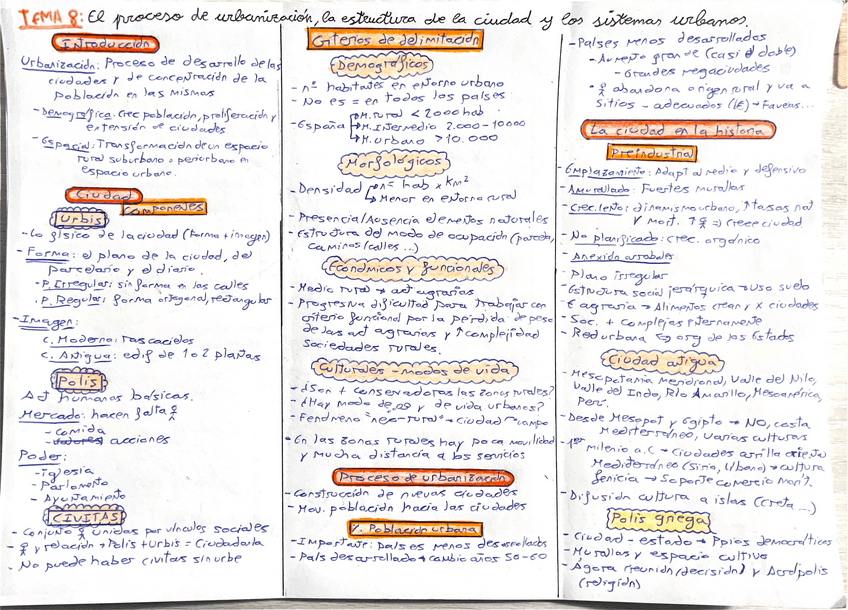 TEMA 8: El proceso de urbanización, la estructura de la ciudad y los sistemas urbanos.
Introducción
Urbanización: Proceso de desarrollo de las
ciudades y de concentración de la
población en las mismas
-Demográfica: Crec población, proliferación y
extensión de ciudades
-Espacial: Transformación de un espacio
rural suburbano o periurbano en
espacio urbano.
Ciudad
Componentes
Urbis
-Lo físico de la ciudad (forma + imagen)
-Forma: el plano de la ciudad, del
parcelario y el diario.
-P. Irregular: sin forma en las calles
-P. Regular: forma ortogonal, rectangular
-Imagen:
C. Moderna: rascacielos
C. Antigua: edif de 1 o 2 plantas
Polis
Act humanas básicas.
Mercado: hacen falta
-comida
acciones
Poder:
-iglesia
-Parlamento
-Ayuntamiento
CIVITAS
-Conjunto unidas por vínculos sociales
y relación → Polis + Urbis = Ciudadanía
-No puede haber civitas sin urbe
Criterios de delimitación
Demográficos
-nº habitantes en entorno urbano
-No es = en todos los países
-España M. rural < 2000 hab
M. Intermedio 2.000-10000
M. urbano > 10.000
Morfológicos
-Densidad nº hab x km2
Menor en entorno rural
-Presencia/Ausencia elementos naturales
-Estructura del modo de ocupación (parcela,
caminos/calles...)
Económicos y funcionales
-Medio rural → act agrarias
-Progresiva dificultad para trabajar con
criterio funcional por la pérdida de peso
de las act agrarias y ↑ complejidad
sociedades rurales.
Culturales - modos de vida
-¿Son + conservadoras las zonas rurales?
-¿Hay modo de y de vida urbanos?
-Fenómeno "neo-rural" → ciudad → campo
-En las zonas rurales hay poca movilidad
y mucha distancia a los servicios
Proceso de urbanización
-Construcción de nuevas ciudades
-Mov. población hacia las ciudades
% Población urbana
-Importante: países menos desarrollados
-País desarrollado → cambio años 50-60
-Países menos desarrollados
-Aumento grande (casi el doble)
-Grandes megaciudades
abandona origen rural y va a
sitios - adecuados → Favelas...
La ciudad en la historia
Preindustrial
-Emplazamiento: Adapt al medio y defensivo
-Amurallado: Fuertes murallas
-Crec. lento: dinamismo urbano, ↑ tasas nat
y mort. ⇒ Crece ciudad
-No planificado: crec. orgánico
-Anexión arrabales
-Plano irregular
-Estructura social jerárquica → uso suelo
-E agraria → Alimentos crean y x ciudades
-Soc. + complejas internamente
-Red urbana ⇔ org de los Estados
Ciudad antigua
-Mesopotamia meridional, Valle del Nilo,
Valle del Indo, Río Amarillo, Mesoamérica,
Perú.
-Desde Mesopot y Egipto → NO, costa
Mediterráneo, varias culturas
-1er milenio a.C → Ciudades orilla oriental
Mediterráneo (Siria, Líbano) → cultura
fenicia → Soporte comercio marít.
-Difusión cultura a islas (Creta...)
Polis griega
-Ciudad-estado → Ppios democráticos
-Murallas y espacio cultivo
-Ágora (reunión/decisión) y Acrópolis
(religión)